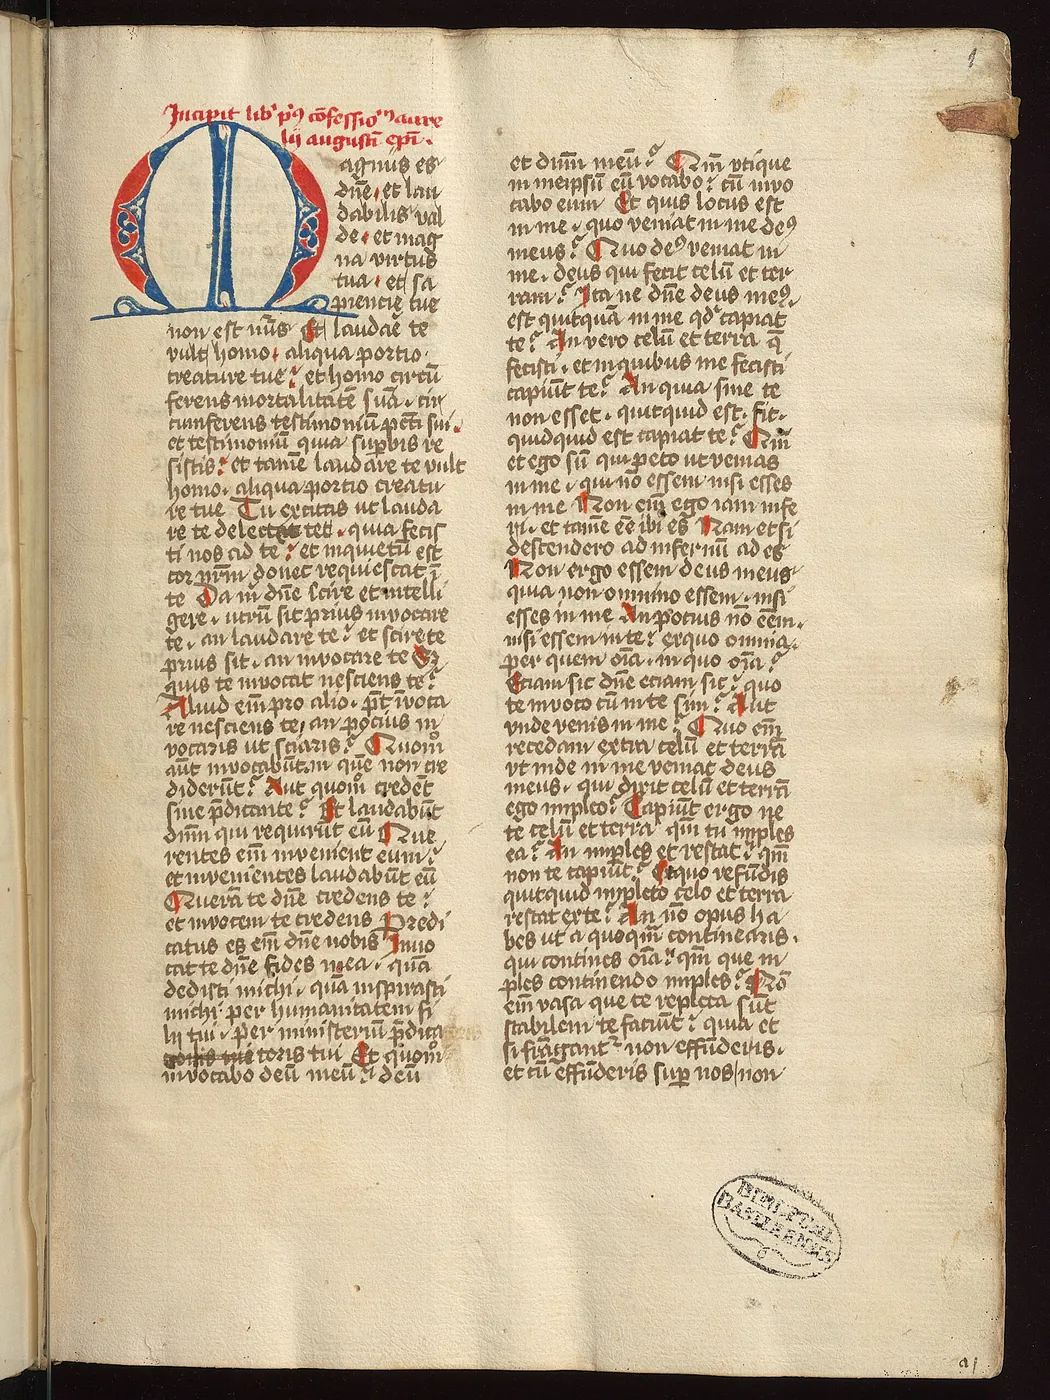 1
Incipit lib' p'9 cōfessio'n aure
lii augusti epi.
Magnus es
dn̄e. et lau
dabilis val
de. et mag
na virtus
tua. et sa
pientie tue
non est nūs Et laudaē te
vult homo. aliqua portio
creature tue? et homo circū
ferens mortalitatē suā. cir
cumferens testimoniū pctī sui.
et testimoniū quia supbis re
sistis? et tamē laudare te vult
homo. aliqua portio creatu
re tue Tu excitas ut lauda
re te delectet. quia fecis
ti nos ad te? et inquietū est
cor nr̄m donec requiescat ī
te Da m dn̄e scire et intelli
gere. utrū sit prius invocare
te. an laudare te? et scire te
prius sit. an invocare te Sz
quis te invocat nesciens te?
Aliud em̄ pro alio. pt̄ īvoca
re nesciens te, an pocius in
vocaris ut sciaris? Quom̄o
aūt invocabūt. in quē non cre
diderūt? Aut quom̄o credēt
sine p̄dicante? Et laudabūt
dnm̄ qui requirūt eū Que
rentes em̄ invenient eum?
et invenientes laudabūt eū
Querā te dn̄e credens te?
et invocem te credens Predi
catus es em̄ dn̄e nobis Invo
cat te dn̄e fides mea. quā
dedisti michi. quā inspirasti
michi per humanitatem fi
lii tui. per ministeriū p̄dica
toris tui Et quom̄o
invocabo deū meū? deū
et dnm̄ meū? Qm̄ utique
in meipsū eū vocabo? cū invo
cabo eum Et quis locus est
in me. quo veniat in me de9
meus? Quo de9 veniat in
me. deus qui fecit celū et ter
ram? Ita ne dn̄e deus me9.
est quitquā in me qd' capiat
te? An vero celū et terra q̄
fecisti. et in quibus me fecisti
capiūt te? An quia sine te
non esset. quitquid est. fit.
quidquid est capiat te? Qm̄
et ego sū qui peto ut venias
in me. qui nō essem nisi esses
in me Non em̄ ego iam infe
ri. et tamē eē ibi es Nam et si
descendero ad infernū ades
Non ergo essem deus meus
quia non omnino essem. nisi
esses in me An pocius nō eēm.
nisi essem in te? ex quo omnia.
per quem oīa. in quo oīa?
Eciam sic dn̄e eciam sic? quo
te invoco cū in te sim? Aut
unde venis in me? Quo em̄
recedam extra celū et terrā
ut inde in me veniat deus
meus. qui dixit celū et terrā
ego impleo? Capiūt ergo ne
te celū et terra qm̄ tu imples
ea? An imples et restat? qm̄
non te capiūt? Et quo refūdis
quitquid impleto celo et terra
restat ex te? An nō opus ha
bes ut a quoqm̄ continearis.
qui contines oīa? qm̄ que im
ples continendo imples? Nō
em̄ vasa que te repleta sūt
stabilem te faciūt? quia et
si frangant2 non effūderis.
et cū effūderis sup nos non
a1